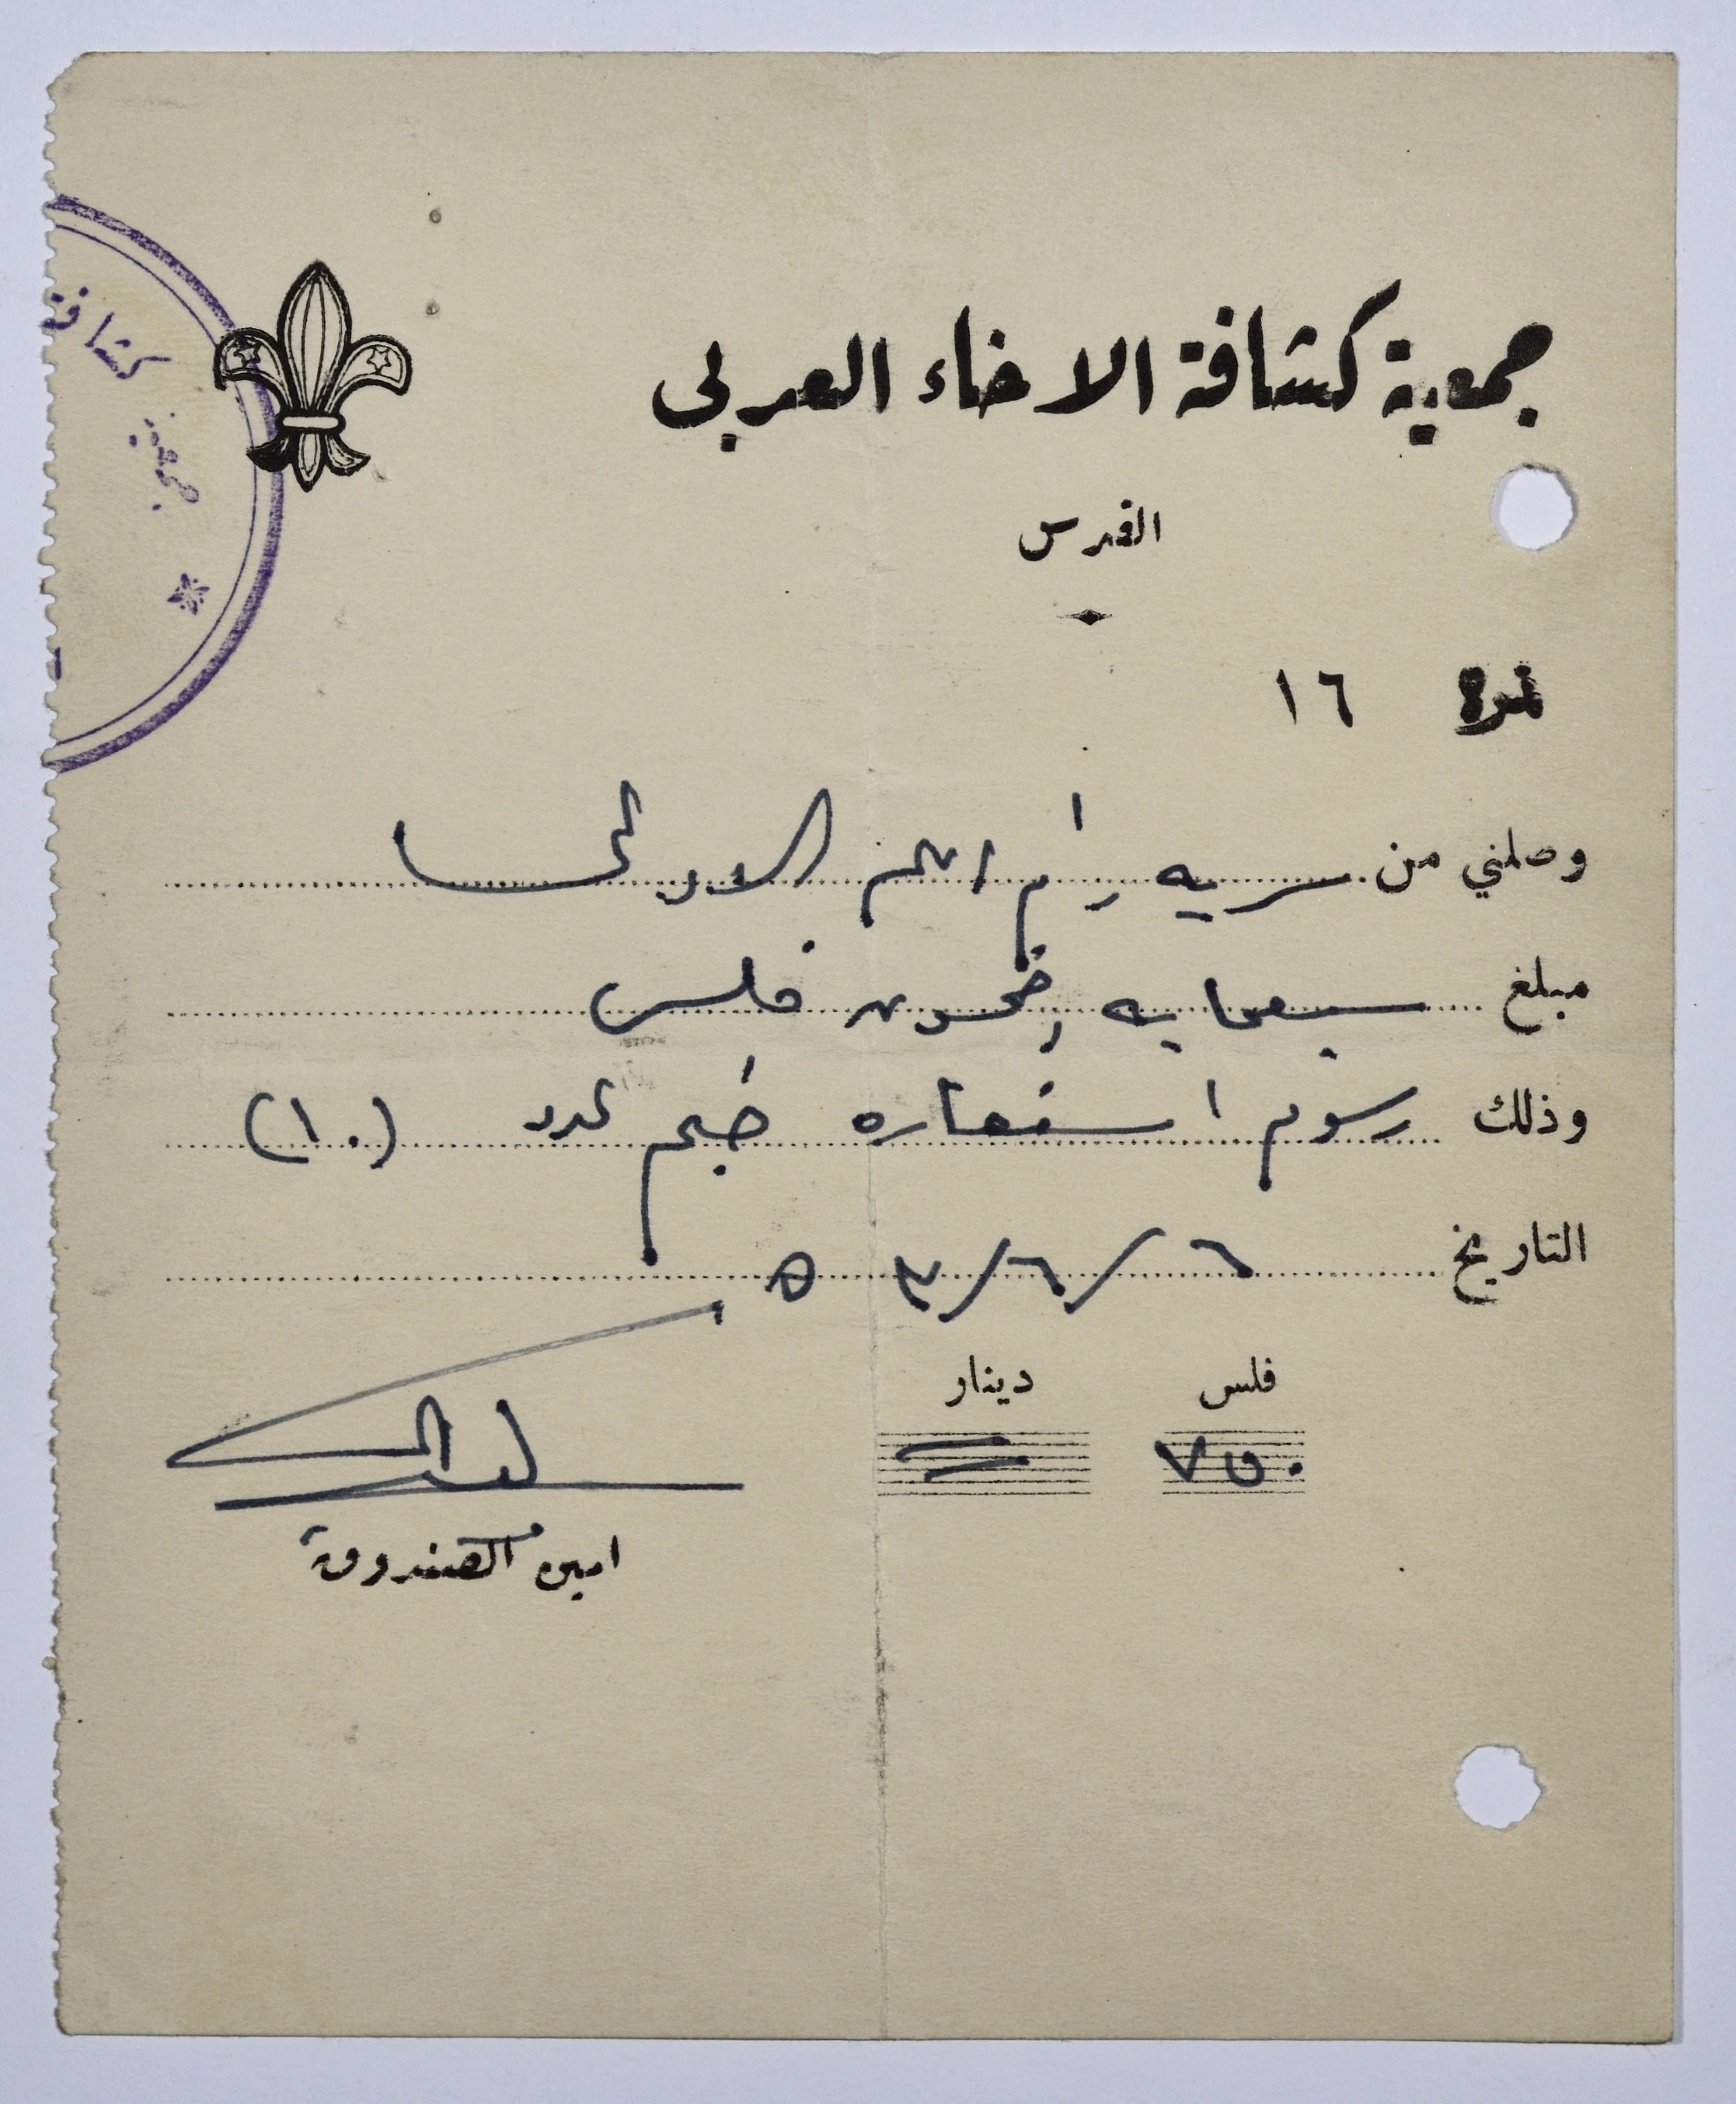 جمعية كشافة الاخاء العربي
القدس
نمرة ١٦
وصلني من سريه رام الله الاولى
مبلغ سبعمايه وخمسون فلس
وذلك رسوم استعاره خيم عدد (١٠)
التاريخ ٦/٦/٥٣
فلس دينار
٧٥٠
امين الصندوق
كشافة
جمعية